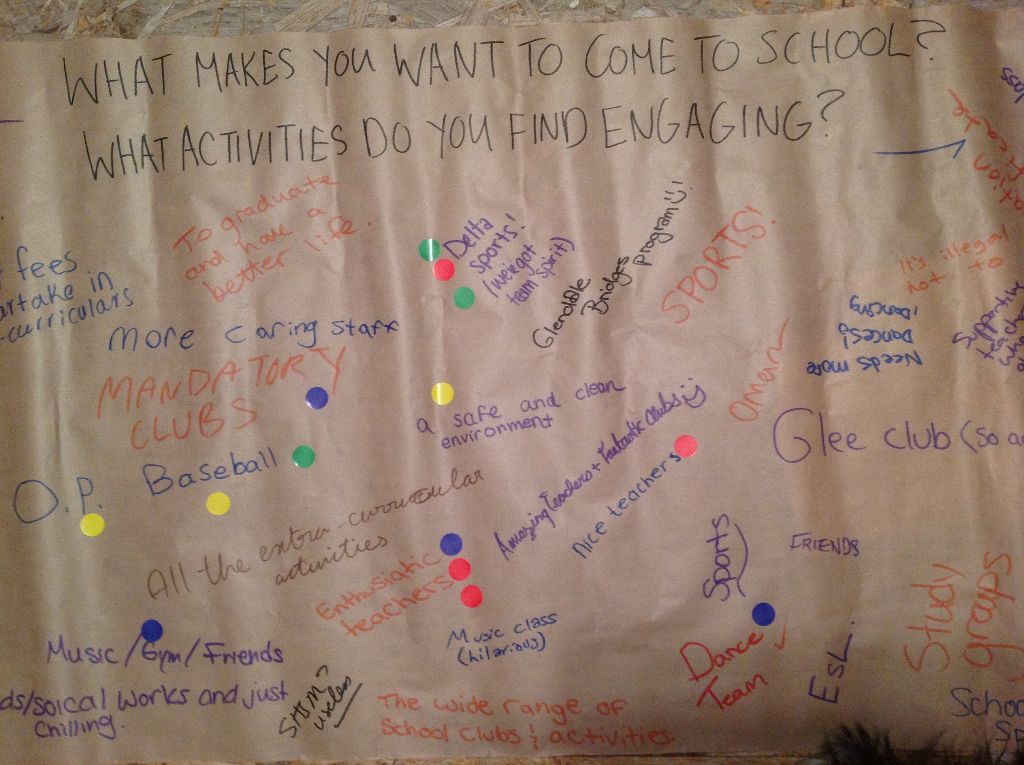 WHAT MAKES YOU WANT TO COME TO SCHOOL?
WHAT ACTIVITIES DO YOU FIND ENGAGING?
To graduate
and have a
better life.
Delta
sports!
(we got
team spirit)
Glendale
Bridges
program
SPORTS!
It's illegal
not to
fees
in
curriculars
More caring staff
MANDATORY
CLUBS
a safe and clean
environment
Needs more
Dances!
Dancing
Supportive
Glee club (so
O.P.
Baseball
Amazing teachers + Fantastic clubs
Nice teachers
All the extra-curricular
activities
Enthusiastic
teachers
Sports
FRIENDS
Study
groups
Music class
(hilarious)
Music/Gym/Friends
Dance
Team
ESL.
soical works and just
chilling.
useless
The wide range of
School clubs & activities.